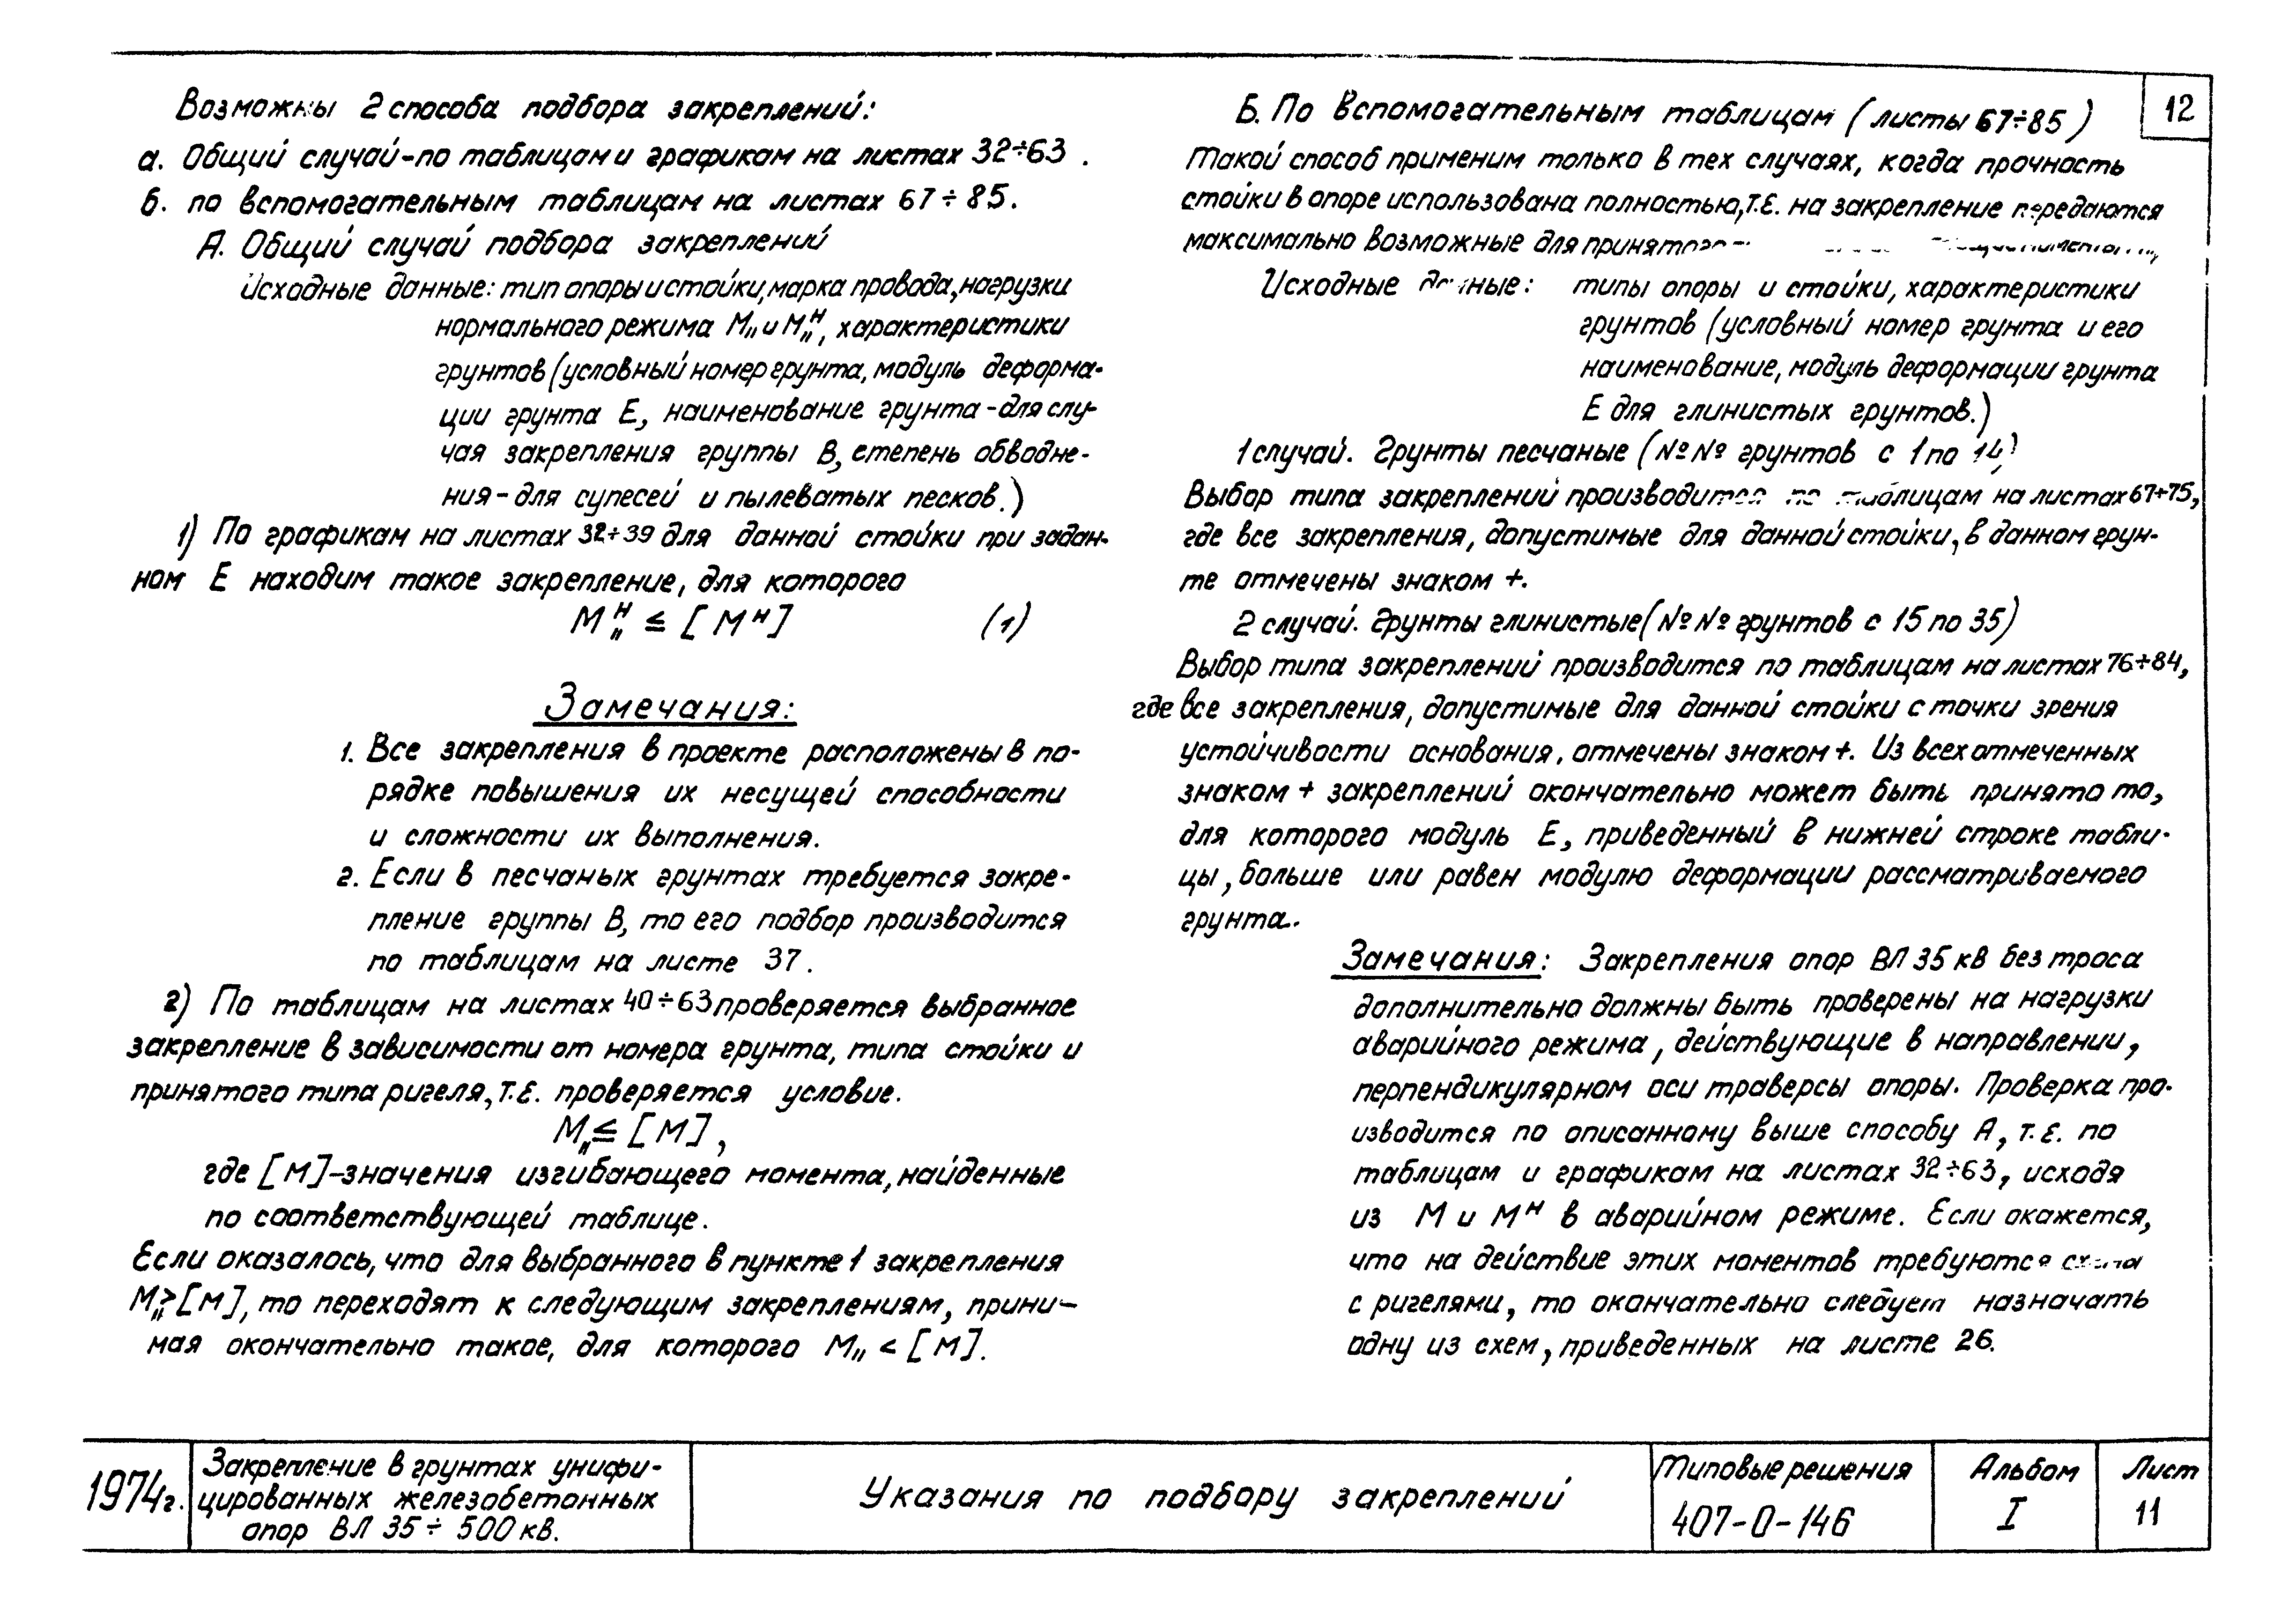 Возможны 2 способа подбора закреплений:
а. Общий случай-по таблицам и графикам на листах 32÷63.
б. по вспомогательным таблицам на листах 67÷85.
А. Общий случай подбора закреплений
Исходные данные: тип опоры и стойки, марка провода, нагрузки
нормального режима М" и М"ᴴ, характеристики
грунтов (условный номер грунта, модуль деформа-
ции грунта Е, наименование грунта-для слу-
чая закрепления группы В, степень обводне-
ния-для супесей и пылеватых песков.)
1) По графикам на листах 32÷39 для данной стойки при задан-
ном Е находим такое закрепление, для которого
М"ᴴ ≤ [Мᴴ] (1)
Замечания:
1. Все закрепления в проекте расположены в по-
рядке повышения их несущей способности
и сложности их выполнения.
2. Если в песчаных грунтах требуется закре-
пление группы В, то его подбор производится
по таблицам на листе 37.
2) По таблицам на листах 40÷63 проверяется выбранное
закрепление в зависимости от номера грунта, типа стойки и
принятого типа ригеля, т.е. проверяется условие.
М" ≤ [М],
где [М]-значения изгибающего момента, найденные
по соответствующей таблице.
Если оказалось, что для выбранного в пункте 1 закрепления
М" > [М], то переходят к следующим закреплениям, прини-
мая окончательно такое, для которого М" < [М].
Б. По вспомогательным таблицам (листы 67÷85)
12
Такой способ применим только в тех случаях, когда прочность
стойки в опоре использована полностью, т.е. на закрепление передаются
максимально возможные для принятого
Исходные данные: типы опоры и стойки, характеристики
грунтов (условный номер грунта и его
наименование, модуль деформации грунта
Е для глинистых грунтов.)
1 случай. Грунты песчаные (№№ грунтов с 1 по 14)
Выбор типа закреплений производится по таблицам на листах 67÷75,
где все закрепления, допустимые для данной стойки, в данном грун-
те отмечены знаком +.
2 случай. Грунты глинистые (№№ грунтов с 15 по 35)
Выбор типа закреплений производится по таблицам на листах 76÷84,
где все закрепления, допустимые для данной стойки с точки зрения
устойчивости основания, отмечены знаком +. Из всех отмеченных
знаком + закреплений окончательно может быть принято то,
для которого модуль Е, приведенный в нижней строке табли-
цы, больше или равен модулю деформации рассматриваемого
грунта.
Замечания: Закрепления опор ВЛ 35 кВ без троса
дополнительно должны быть проверены на нагрузки
аварийного режима, действующие в направлении,
перпендикулярном оси траверсы опоры. Проверка про-
изводится по описанному выше способу А, т.е. по
таблицам и графикам на листах 32÷63, исходя
из М и Мᴴ в аварийном режиме. Если окажется,
что на действие этих моментов требуются схемы
с ригелями, то окончательно следует назначать
одну из схем, приведенных на листе 26.
1974г.
Закрепление в грунтах унифи-
цированных железобетонных
опор ВЛ 35÷500 кв.
Указания по подбору закреплений
Типовые решения
407-0-146
Альбом
I
Лист
11